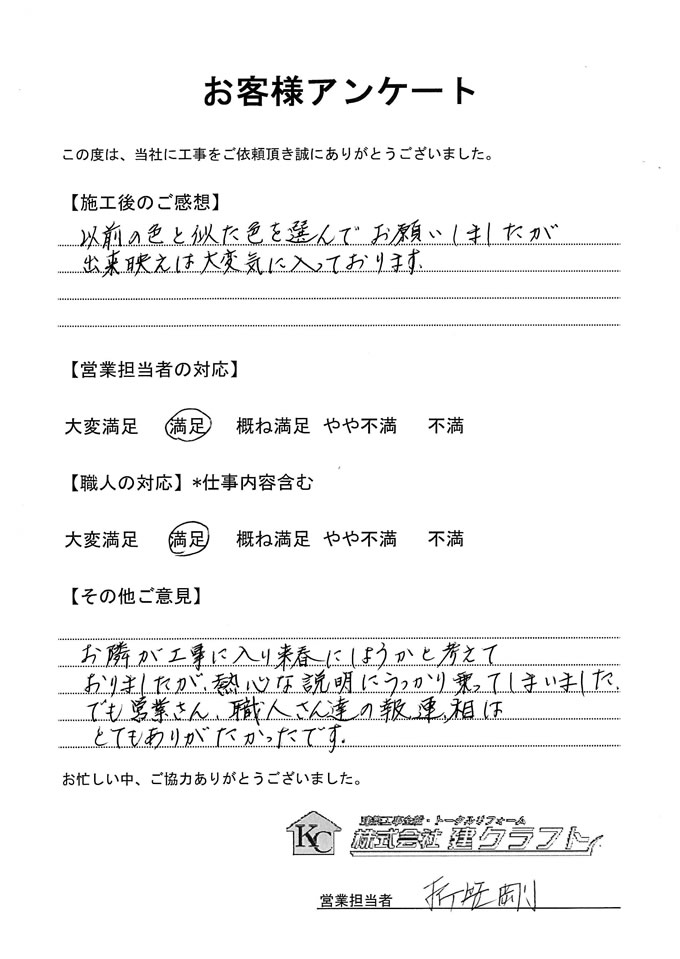 お客様アンケート
この度は、当社に工事をご依頼頂き誠にありがとうございました。
【施工後のご感想】
以前の色と似た色を選んでお願いしましたが
出来映えは大変気に入っております。
【営業担当者の対応】
大変満足 満足 概ね満足 やや不満 不満
【職人の対応】*仕事内容含む
大変満足 満足 概ね満足 やや不満 不満
【その他ご意見】
お隣が工事に入り来春にしようかと考えて
おりましたが、熱心な説明にうっかり乗ってしまいました、
でも営業さん、職人さん達の報、連、相は
とてもありがたかったです。
お忙しい中、ご協力ありがとうございました。
KC
建築工事全般・トータルリフォーム
株式会社 建クラフト
営業担当者 剛